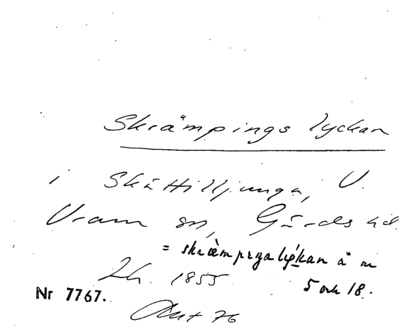 Skrämpings lyckan
i Skättilljunga, V.
Vram sn, Gärds hd.
= skräm pega lýckan å m
Lh. 1855 5 och 18.
Nr 7767.
76